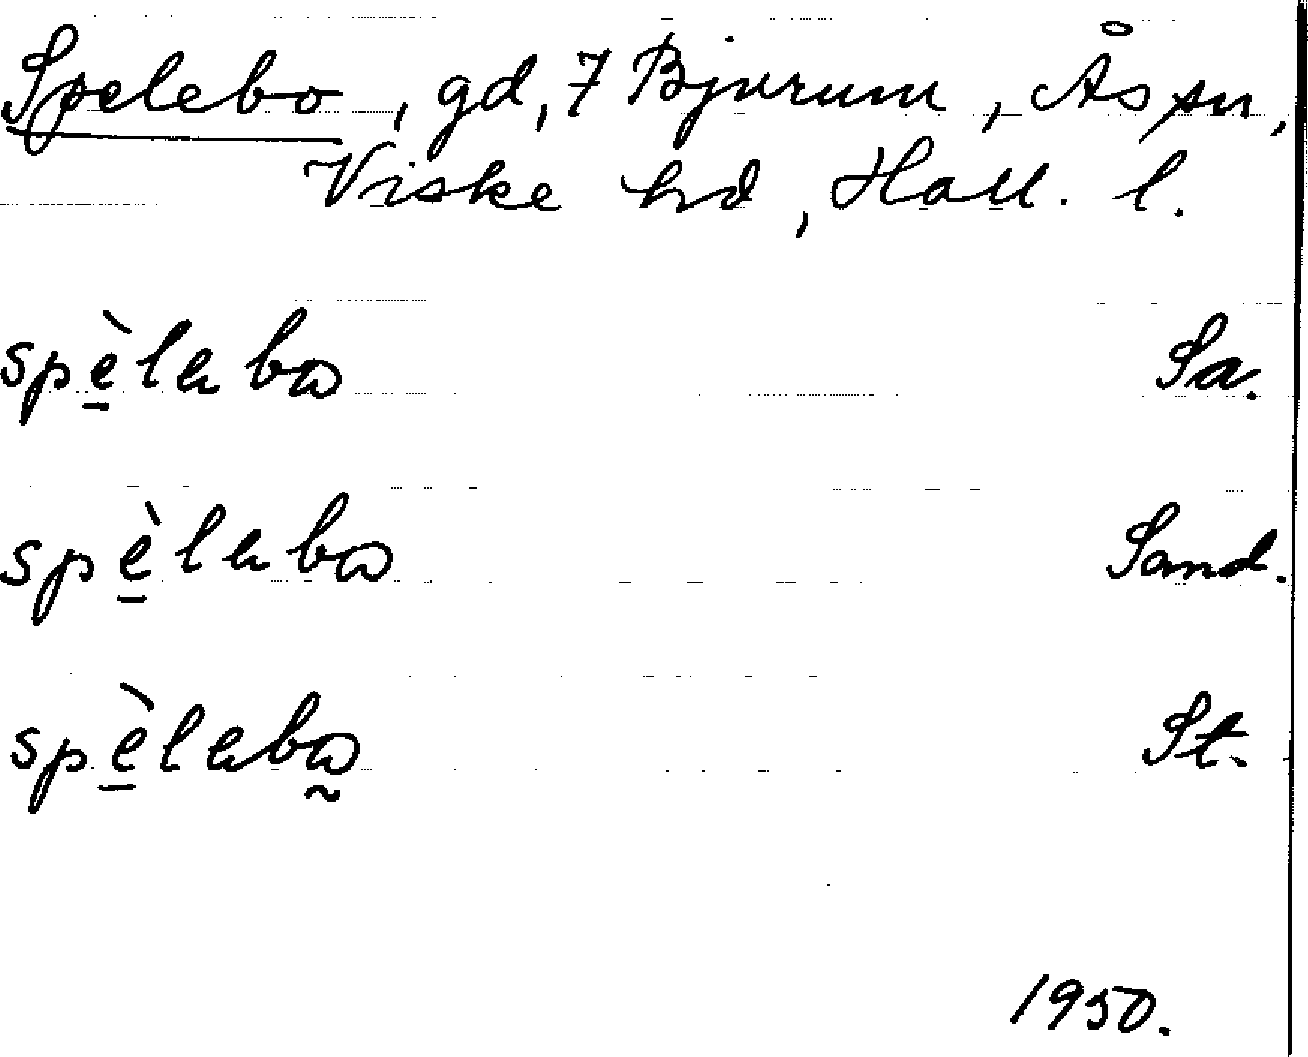 Spelebo, gd, 7 Bjurum, Ås sn,
Viske hd, Hall. l.
spè̠lebω Sa.
spè̠lebω Sand.
spè̠lebω̰ St.
1950.